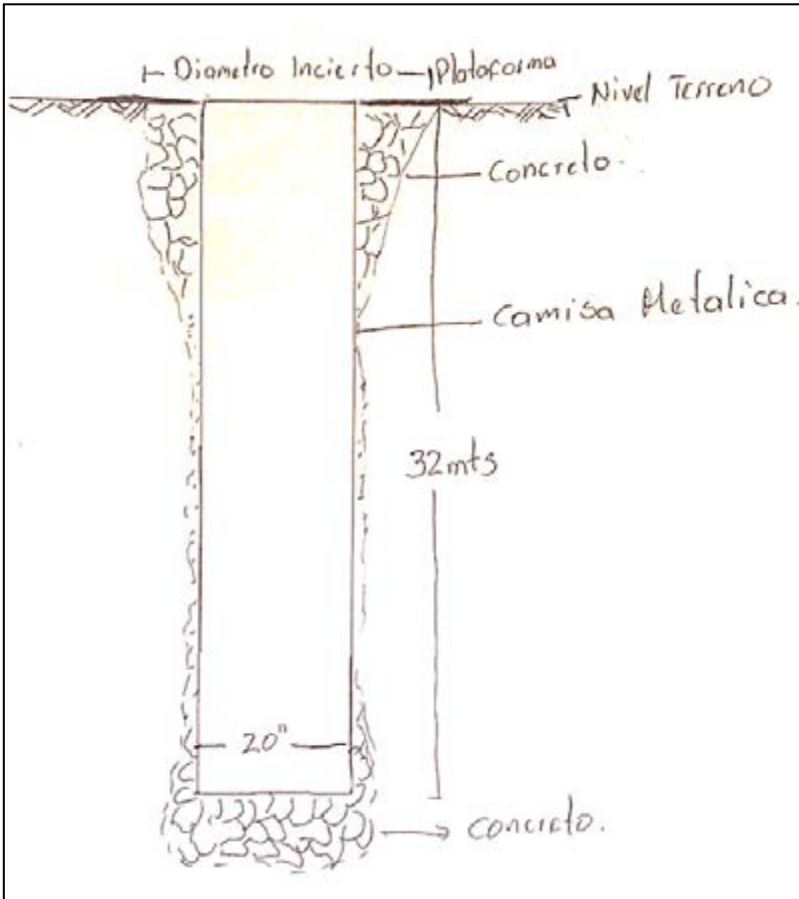 Diametro Incierto
Plataforma
Nivel Terreno
Concreto.
Camisa Metalica.
32mts
20"
concreto.